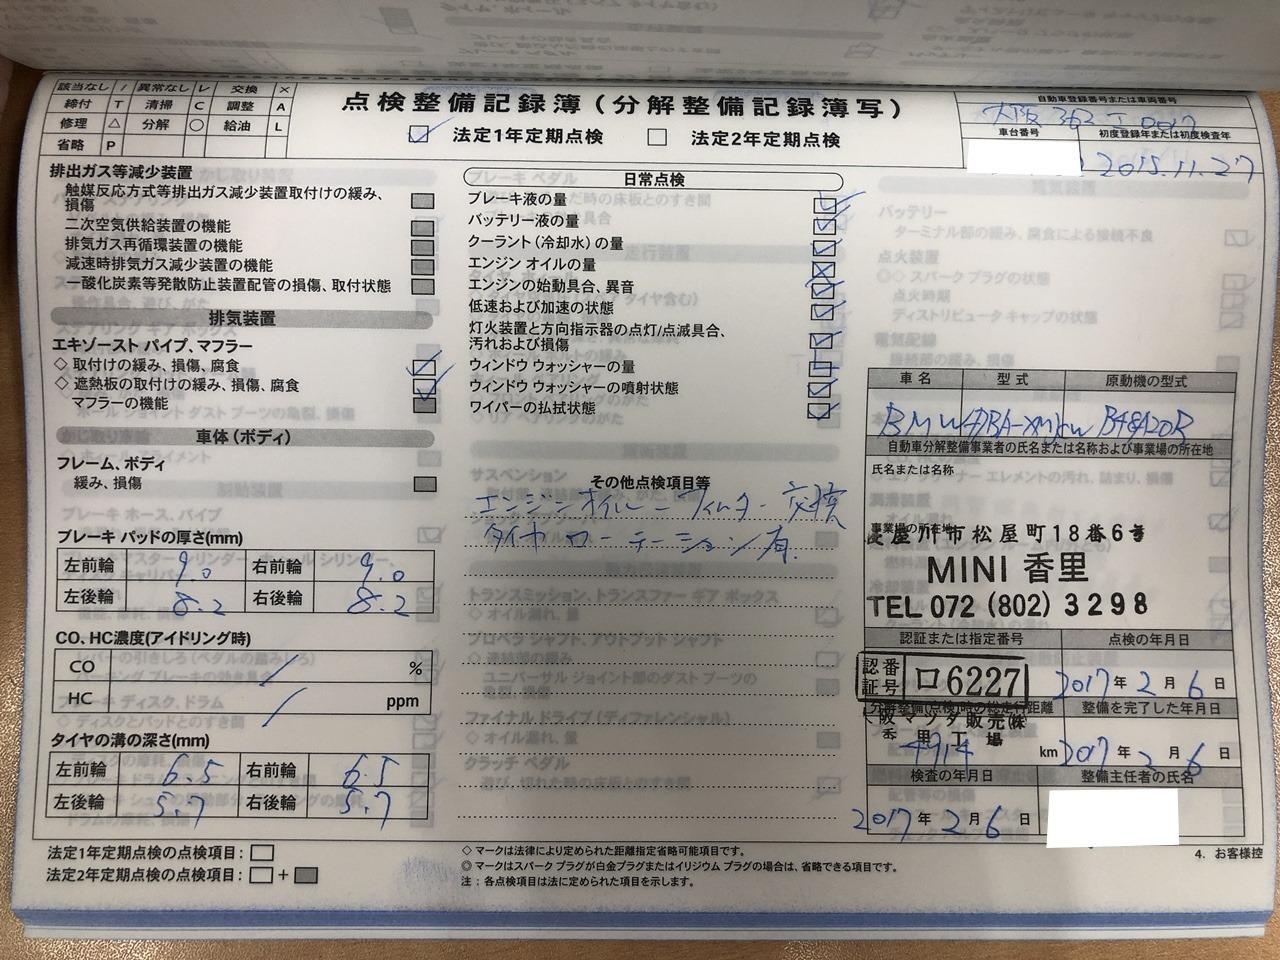 該当なし / 異常なし レ 交換 ×
締付 T 清掃 C 調整 A
修理 △ 分解 ○ 給油 L
省略 P
点検整備記録簿(分解整備記録簿写)
法定1年定期点検 法定2年定期点検
自動車登録番号または車両番号
大阪 362
車台番号 初度登録年または初度検査年
2015.11.27
排出ガス等減少装置
触媒反応方式等排出ガス減少装置取付けの緩み、
損傷
二次空気供給装置の機能
排気ガス再循環装置の機能
減速時排気ガス減少装置の機能
一酸化炭素等発散防止装置配管の損傷、取付状態
排気装置
エキゾースト パイプ、マフラー
◇ 取付けの緩み、損傷、腐食
◇ 遮熱板の取付けの緩み、損傷、腐食
マフラーの機能
車体(ボディ)
フレーム、ボディ
緩み、損傷
ブレーキ パッドの厚さ(mm)
左前輪 9.0 右前輪 9.0
左後輪 8.2 右後輪 8.2
CO、HC濃度(アイドリング時)
CO / %
HC / ppm
タイヤの溝の深さ(mm)
左前輪 6.5 右前輪 6.5
左後輪 5.7 右後輪 5.7
法定1年定期点検の点検項目:
法定2年定期点検の点検項目: +
日常点検
ブレーキ液の量
バッテリー液の量
クーラント(冷却水)の量
エンジン オイルの量
エンジンの始動具合、異音
低速および加速の状態
灯火装置と方向指示器の点灯/点滅具合、
汚れおよび損傷
ウィンドウ ウォッシャーの量
ウィンドウ ウォッシャーの噴射状態
ワイパーの払拭状態
その他点検項目等
エンジンオイル 交換
タイヤ ローテーション 有
◇ マークは法律により定められた距離指定省略可能項目です。
◎ マークはスパーク プラグが白金プラグまたはイリジウム プラグの場合は、省略できる項目です。
注 : 各点検項目は法に定められた項目を示します。
車名 型式 原動機の型式
BMW DBA- B48A20A
自動車分解整備事業者の氏名または名称および事業場の所在地
氏名または名称
事業場の所在地
屋川市松屋町18番6号
MINI 香里
TEL 072 (802) 3298
認証または指定番号 点検の年月日
認証番号 口6227 2017 年 2 月 6 日
分解整備(点検)時の総走行距離 整備を完了した年月日
阪マツダ販売㈱
香里工場
4914 km 2017 年 2 月 6 日
検査の年月日 整備主任者の氏名
2017 年 2 月 6 日
4. お客様控